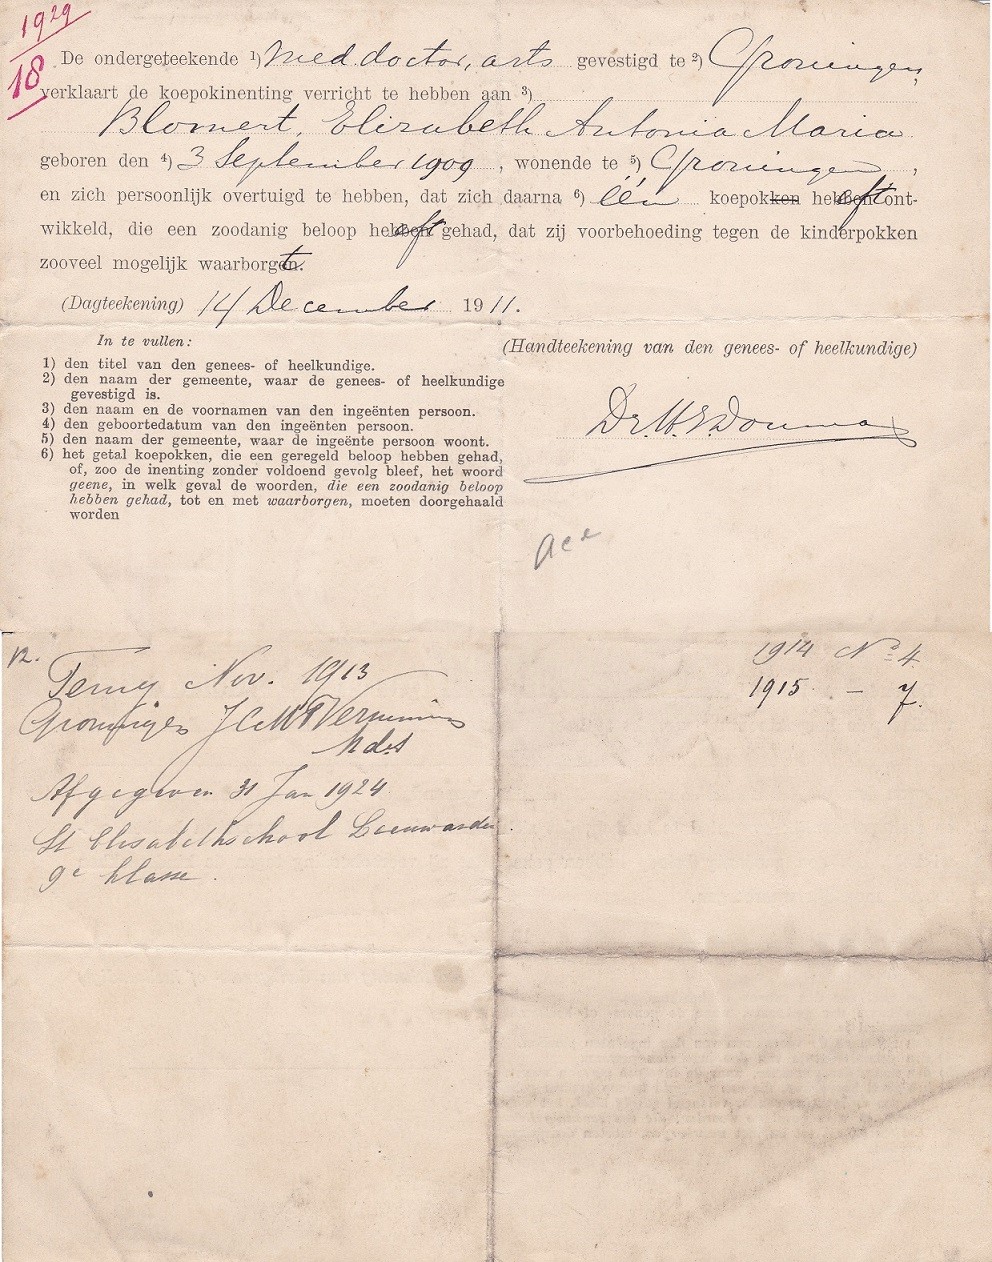 1929
18
De ondergeteekende ¹) med. doctor, arts gevestigd te ²) Groningen,
verklaart de koepokinenting verricht te hebben aan ³)
Blomert, Elizabeth Antonia Maria
geboren den ⁴) 3 September 1909, wonende te ⁵) Groningen,
en zich persoonlijk overtuigd te hebben, dat zich daarna ⁶) één koepokken hebben eft ont-
wikkeld, die een zoodanig beloop hebben eft gehad, dat zij voorbehoeding tegen de kinderpokken
zooveel mogelijk waarborgt.
(Dagteekening) 14 December 1911.
In te vullen:
(Handteekening van den genees- of heelkundige)
1) den titel van den genees- of heelkundige.
2) den naam der gemeente, waar de genees- of heelkundige
gevestigd is.
3) den naam en de voornamen van den ingeënten persoon.
4) den geboortedatum van den ingeënten persoon.
5) den naam der gemeente, waar de ingeënte persoon woont.
6) het getal koepokken, die een geregeld beloop hebben gehad,
of, zoo de inenting zonder voldoend gevolg bleef, het woord
geene, in welk geval de woorden, die een zoodanig beloop
hebben gehad, tot en met waarborgen, moeten doorgehaald
worden
Dr. H. E. Douma
Nov. 1913
Groningen
Afgegeven 31 Jan 1924.
St Elisabethschool Leeuwarden.
9e klasse.
1914 No 4.
1915 - 7.